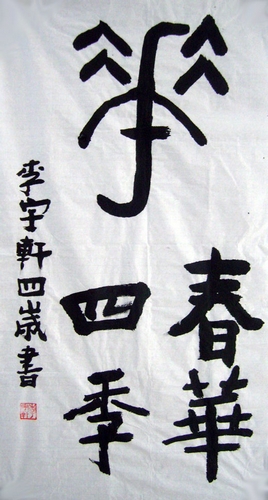 華
春華
四季
李宇軒四歲書